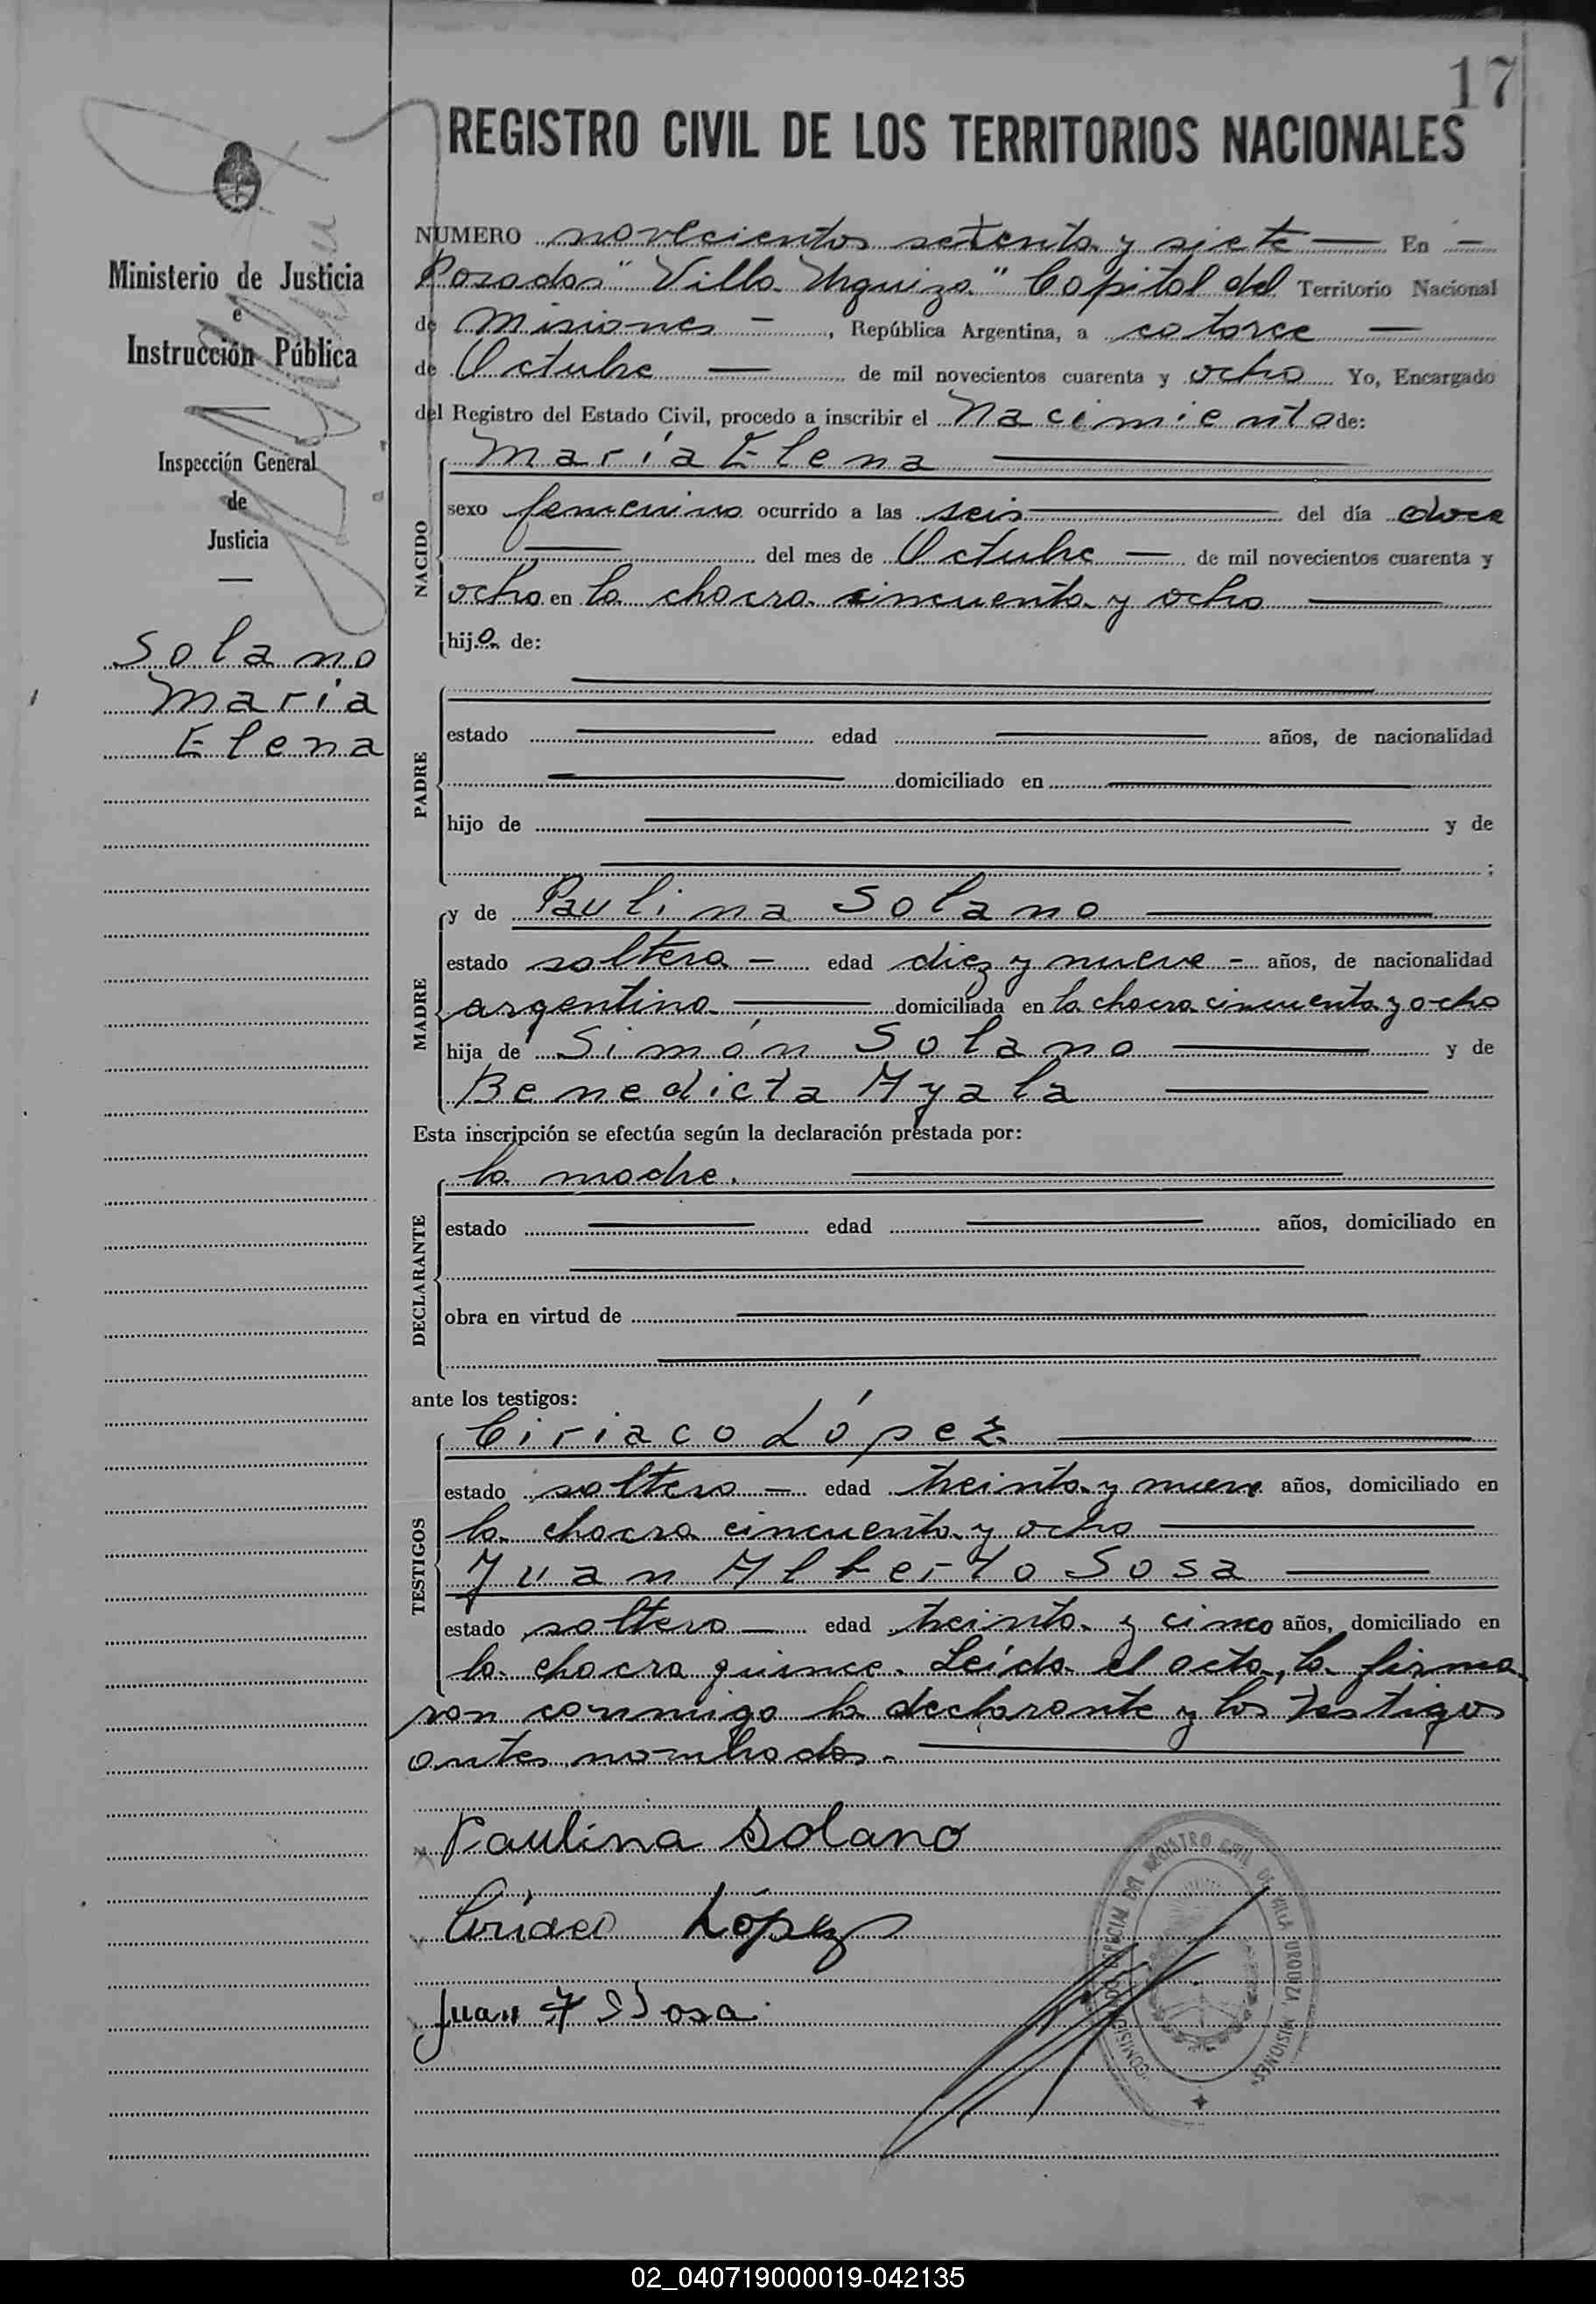 17
REGISTRO CIVIL DE LOS TERRITORIOS NACIONALES
Ministerio de Justicia
e
Instrucción Pública
Inspección General
de
Justicia
Solano
María
Elena
NUMERO novecientos setenta y siete — En —
Posadas "Villa Urquiza" Capital del Territorio Nacional
de Misiones — , República Argentina, a catorce —
de Octubre — de mil novecientos cuarenta y ocho Yo, Encargado
del Registro del Estado Civil, procedo a inscribir el Nacimiento de:
María Elena
NACIDO
sexo femenino ocurrido a las seis — del día doce
— del mes de Octubre — de mil novecientos cuarenta y
ocho en la chacra cincuenta y ocho —
hija de:
PADRE
estado — edad — años, de nacionalidad
— domiciliado en —
hijo de — y de
— ;
MADRE
y de Paulina Solano —
estado soltera — edad diez y nueve — años, de nacionalidad
argentina — domiciliada en la chacra cincuenta y ocho
hija de Simón Solano — y de
Benedicta Ayala —
Esta inscripción se efectúa según la declaración prestada por:
la madre. —
DECLARANTE
estado — edad — años, domiciliado en
—
obra en virtud de —
—
ante los testigos:
TESTIGOS
Ciriaco López —
estado soltero — edad treinta y nueve años, domiciliado en
la chacra cincuenta y ocho —
Juan Alberto Sosa —
estado soltero — edad treinta y cinco años, domiciliado en
la chacra quince. Leída el acta, la firma
ron conmigo la declarante y los testigos
antes nombrados. —
Paulina Solano
Ciriaco López
Juan A Sosa
COMISIONADO ESPECIAL DEL REGISTRO CIVIL DE VILLA URQUIZA MISIONES
02_040719000019-042135